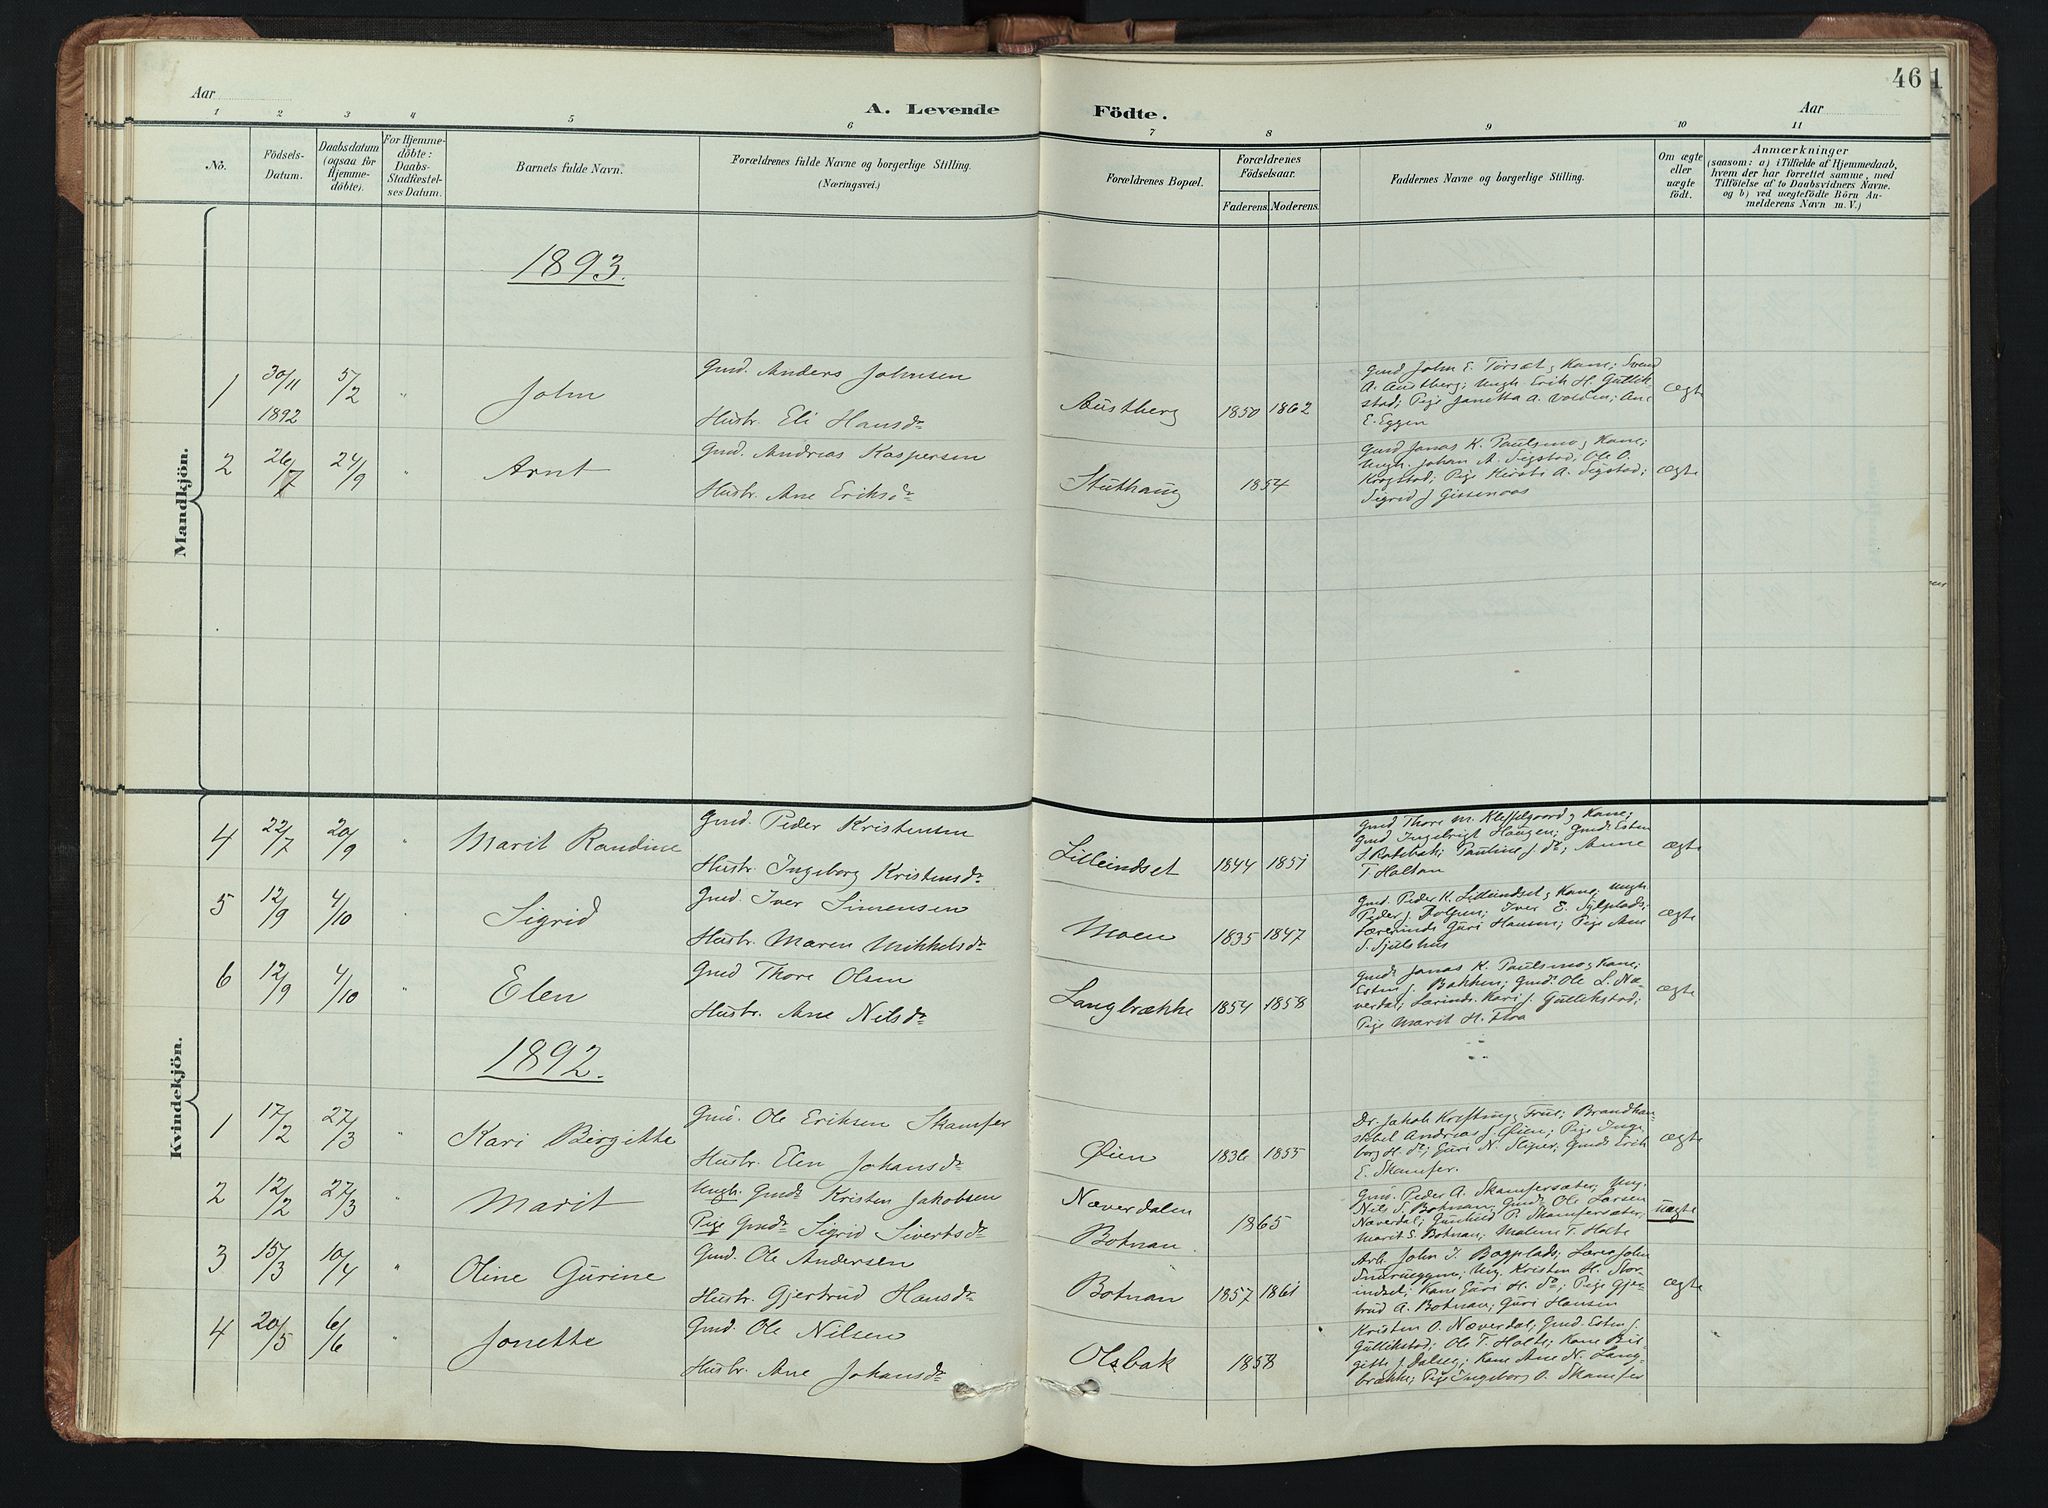 Aar
A. Levende
Födte.
Aar
46 1
1 2 3 4 5 6 7 8 9 10 11
Nö.
Födsels-Datum.
Daabsdatum (ogsaa for Hjemme-döbte).
For Hjemme-döbte: Daabs-Stadfæstel-ses Datum.
Barnets fulde Navn.
Forældrenes fulde Navne og borgerlige Stilling.
(Næringsvei.)
Forældrenes Bopæl.
Forældrenes Födselsaar.
Faderens. Moderens.
Faddernes Navne og borgerlige Stilling.
Om ægte eller uægte födt.
Anmærkninger
(saasom: a) i Tilfælde af Hjemmedaab,
hvem der har forrettet samme, med
Tilföielse af to Daabsvidners Navne.
og b) ved uægtefödte Börn An-
melderens Navn m. V.)
Mandkjön.
1893.
1 30/11 1892 5/2 " John
Gmd. Anders Johnsen
Hustr. Eli Hansdr
Austberg 1850 1862
Gmd John E. Torsæt og Kone; Svend
A. Austberg; Ungk. Erik H. Gullik-
stad; Pige Janetta A. Volden; Ane
E. Eggen
ægte
2 26/7 24/9 " Arnt
Gmd. Andreas Kaspersen
Hustr. Ane Eriksdr
Stuthaug 1854
Gmd Jonas K. Paulsmo og Kone;
Ungk. Johan A. Sigstad; Ole O.
Krogstad; Pige Kirsti A. Sigstad;
Sigrid J
ægte
Kvindekjön.
4 22/7 20/9 " Marit Randine
Gmd. Peder Kristensen
Hustr. Ingeborg Kristensdr
Lilleindset 1844 1851
Gmd Thore M. Kleffelgaard og Kone;
Gmd Ingebrigt Haugen; Gmd Esten
Pauline J. dr; Anne
T. Holtan
ægte
5 12/9 4/10 Sigrid
Gmd. Iver Simensen
Hustr. Maren Mikkelsdr
Moen 1835 1847
Gmd. Peder K. Lilleindset og Kone; Ungk.
Peder J. Iver E.
Lærerinde Guri Hansen; Pige Ane
S. Sjulshus
ægte
6 12/9 4/10 " Elen
Gmd Thore Olsen
Hustr. Ane Nilsdr
Langbrække 1854 1858
Gmd Jonas K. Paulsmo og Kone;
Esten J. Bakken; Gmd. Ole L. Næ-
verdal; Lærind. Kari J. Gullikstad;
Pige Marit H. Floa
ægte
1892.
1 17/2 27/3 " Kari Birgitte
Gmd. Ole Eriksen Skamfer
Hustr. Elen Johansdr
Øien 1836 1855
Dr. Jakob Kreftung og Frue; Brandkon-
stabel Andreas J. Øien; Pige Inge-
borg H. dr; Guri N. Gmd. Erik
E. Skamfer.
ægte
2 12/2 27/3 " Marit
Ungk. Gmds Kristen Jakobsen
Pige Gmdr Sigrid Sivertsdr
Næverdalen
Botnan 1865
Gmd. Peder A. Skamfersæter; Ung.
Nils S. Botnan; Gmd. Ole Larsen
Næverdal; Gunhild P. Skamfersæter;
Marit S. Botnan; Malene T. Holte
uægte
3 15/3 10/4 " Oline Gurine
Gmd. Ole Andersen
Hustr. Gjertrud Hansdr
Botnan 1857 1861
Arb. John I. Bogplads; Lærer John
Ung. Kristen H. Stor-
indset; Kone Guri H. dr; Pige Gjer-
trud A. Botnan; Guri Hansen
ægte
4 20/5 6/6 " Jonette
Gmd. Ole Nilsen
Hustr. Ane Johansdr
Olsbak 1858
Kristen O. Næverdal; Gmd. Esten J.
Gullikstad; Ole T. Holte; Kone Bir-
gitte J Dalseg; Kone Ane N. Lang-
brække; Pige Ingeborg O. Skamfer